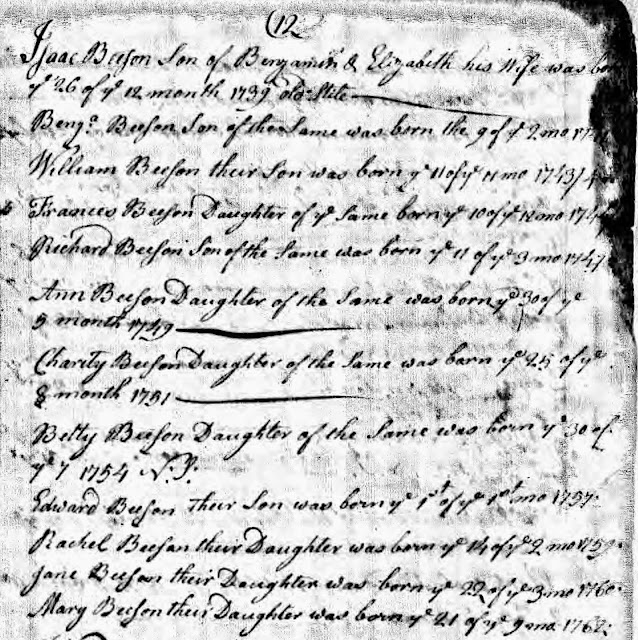 (12
Isaac Beeson Son of Benjamin & Elizabeth his Wife was bo
ye 26 of ye 12 month 1739 old Stile
Benja. Beeson Son of the Same was born the 9 of ye 2 mo 174
William Beeson their Son was born ye 11 of ye 11 mo 1743/4
Frances Beeson Daughter of ye Same born ye 10 of ye 12 mo 174
Richard Beeson Son of the Same was born ye 11 of ye 3 mo 1747
Ann Beeson Daughter of the Same was born ye 30 of ye
5 month 1749
Charity Beeson Daughter of the Same was born ye 25 of ye
8 month 1751
Betty Beeson Daughter of the Same was born ye 30 of
ye 7 1754 N.S.
Edward Beeson their Son was born ye 1st of ye 1st mo 1757.
Rachel Beeson their Daughter was born ye 14 of ye 2 mo 1759.
Jane Beeson their Daughter was born ye 22 of ye 3 mo 1760.
Mary Beeson their Daughter was born ye 21 of ye 9 mo 1762.